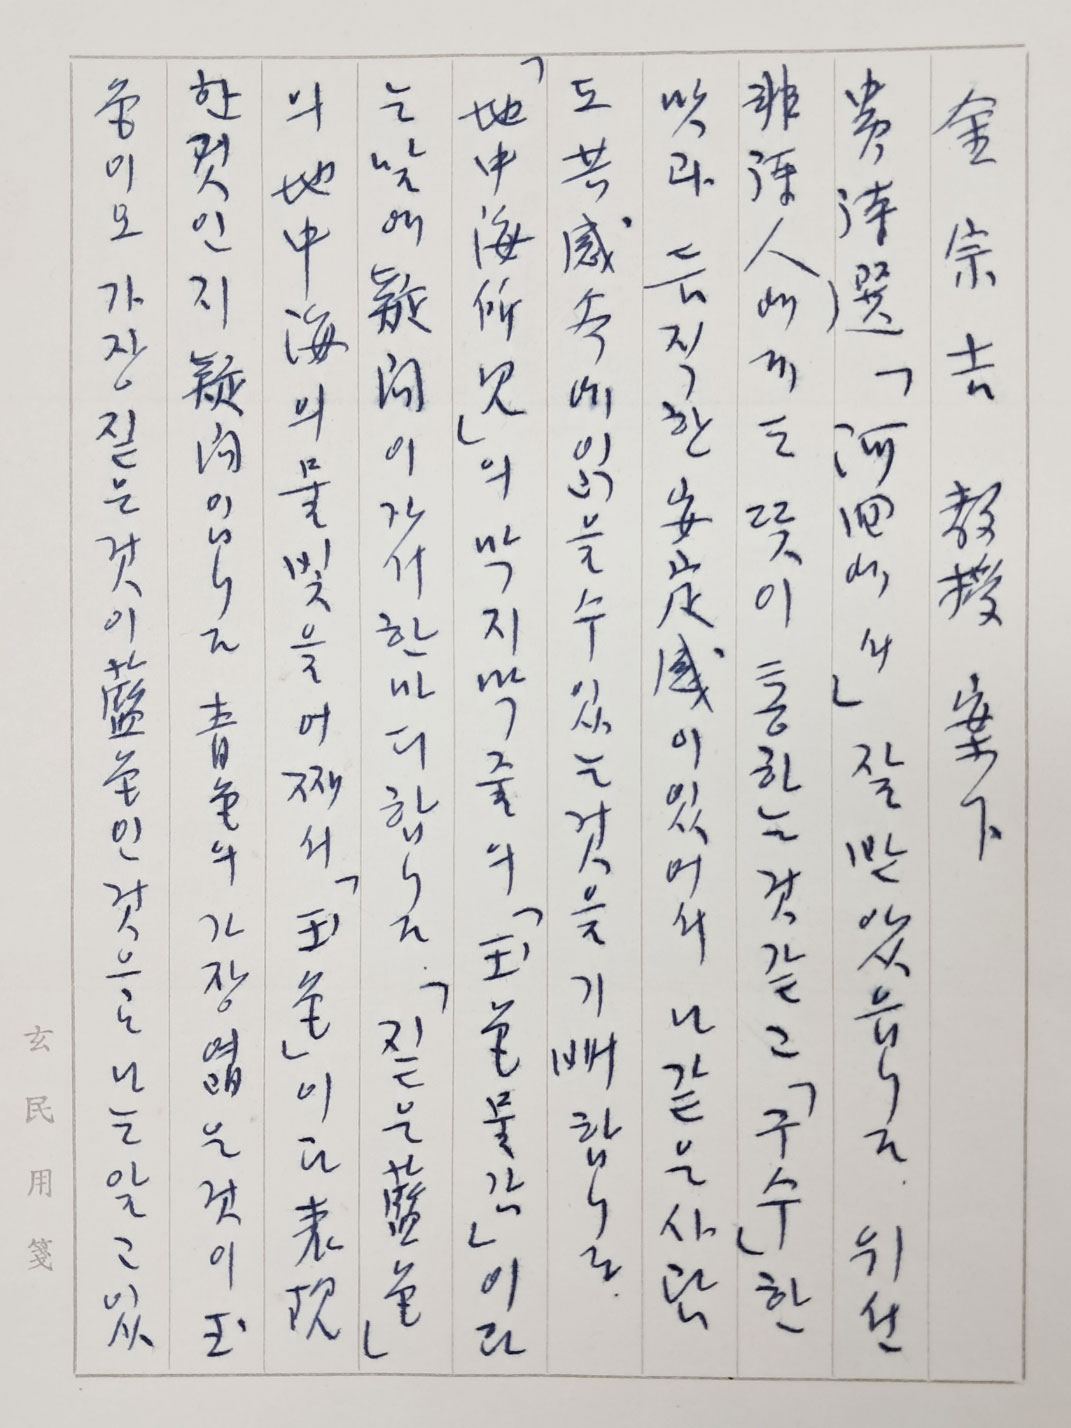 金宗吉 敎授 案下
貴詩選「河回에서」 잘 받았읍니다. 위선
非詩人에게도 뜻이 통하는것 같고 「구수」한
맛과 듬직한 安定感이 있어서 나같은 사람
도 共感속에 읽을 수 있는것을 기뻐합니다.
「地中海所見」의 막지막줄의 「玉色물감」이라
는 낱에 疑問이 가서 한마디합니다. 「짙은 藍色」
의 地中海의 물빛을 어째서 「玉色」이다 表現
한것인지 疑問입니다 靑色의 가장 엷은것이 玉
色이오 가장 짙은것이 藍色인것을 나는 알고 있
玄民用箋